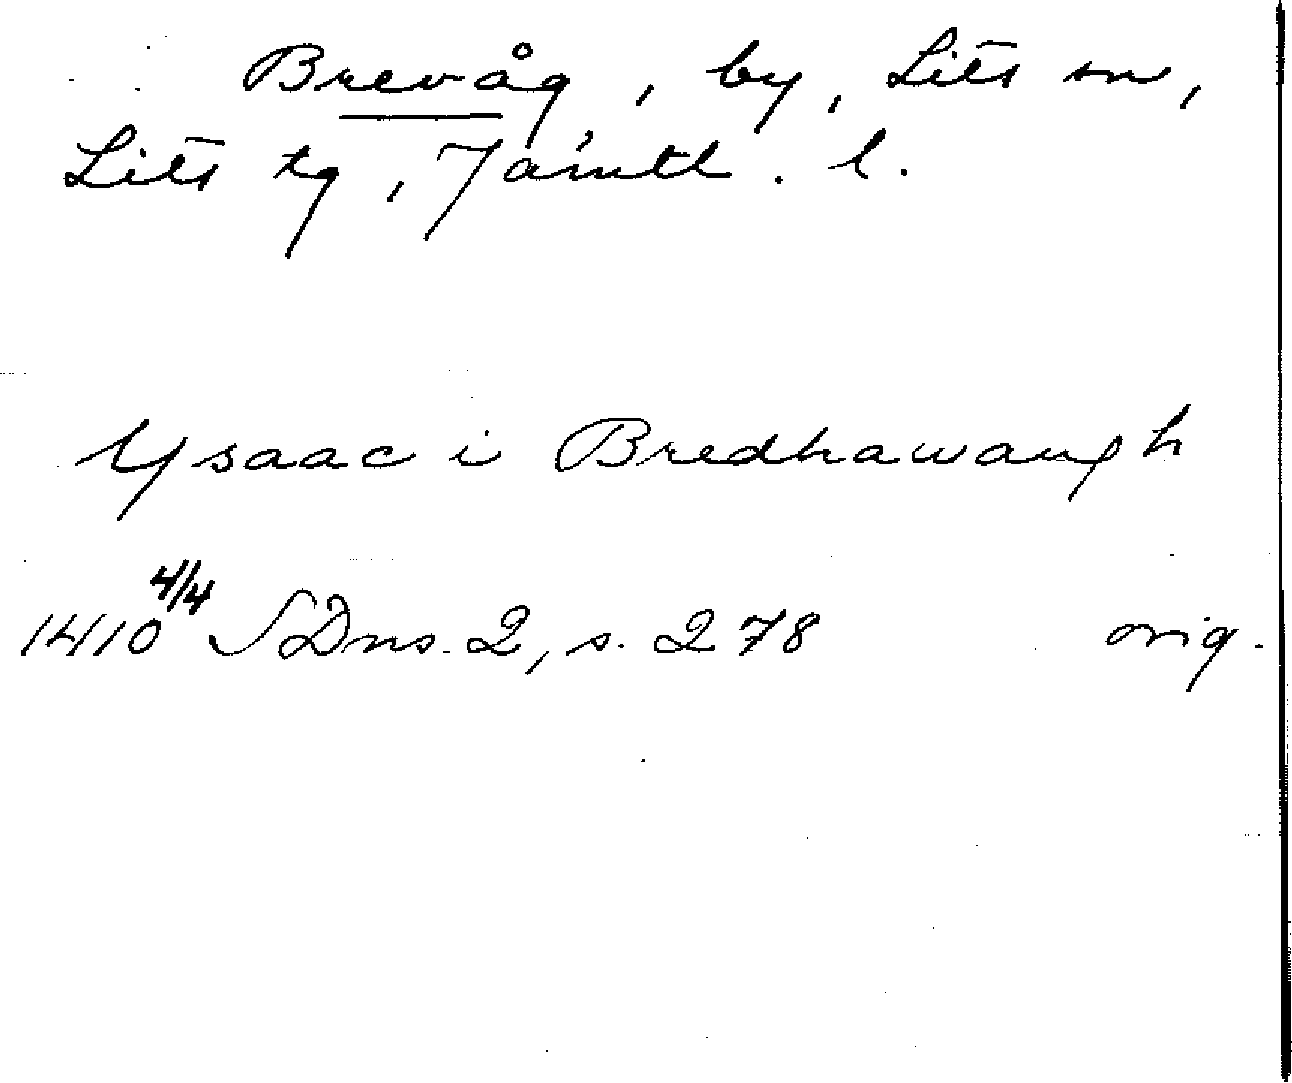 Brevåg, by, Lits sn,
Lits tg, Jämtl. l.
Ysaac i Bredhawaugh
1410 4/4 SDns. 2, s. 278 orig.